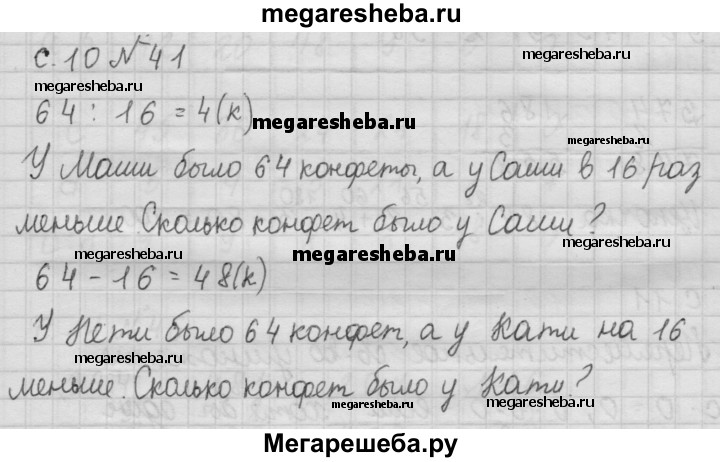 megaresheba.ru
с. 10 № 41
megaresheba.ru
megaresheba.ru
64 : 16 = 4 (к)
megaresheba.ru
megaresheba.ru
У Маши было 64 конфеты, а у Саши в 16 раз
меньше. Сколько конфет было у Саши?
megaresheba.ru
megaresheba.ru
64 - 16 = 48 (к)
У Пети было 64 конфет, а у Кати на 16
megaresheba.ru
меньше. Сколько конфет было у Кати?
megaresheba.ru
megaresheba.ru
Мегарешеба.ру